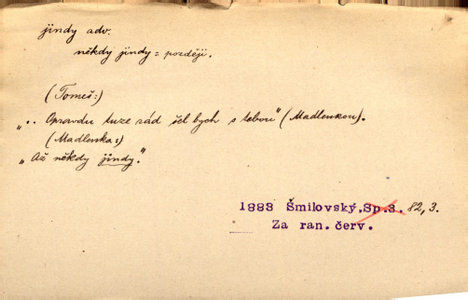 jindy adv.
někdy jindy = později.
(Tomeš:)
„.. Opravdu tuze rád šel bych s tebou" (Madlenkou).
(Madlenka:)
„Až někdy jindy."
1883 Šmilovský, Sp.3. 82,3.
Za ran. červ.